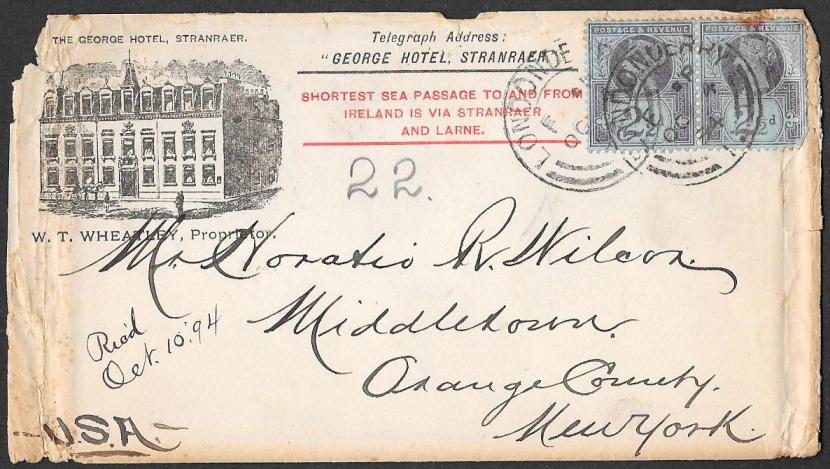 THE GEORGE HOTEL, STRANRAER.
Telegraph Address:
"GEORGE HOTEL, STRANRAER"
SHORTEST SEA PASSAGE TO AND FROM
IRELAND IS VIA STRANRAER
AND LARNE.
POSTAGE & REVENUE
POSTAGE & REVENUE
2½d
LONDONDERRY
LONDONDERRY
22.
W. T. WHEATLEY, Proprietor.
Mr. Horatio R. Wilcox.
Middletown.
Orange County.
New York.
Rec'd
Oct. 10. '94
U.S.A.